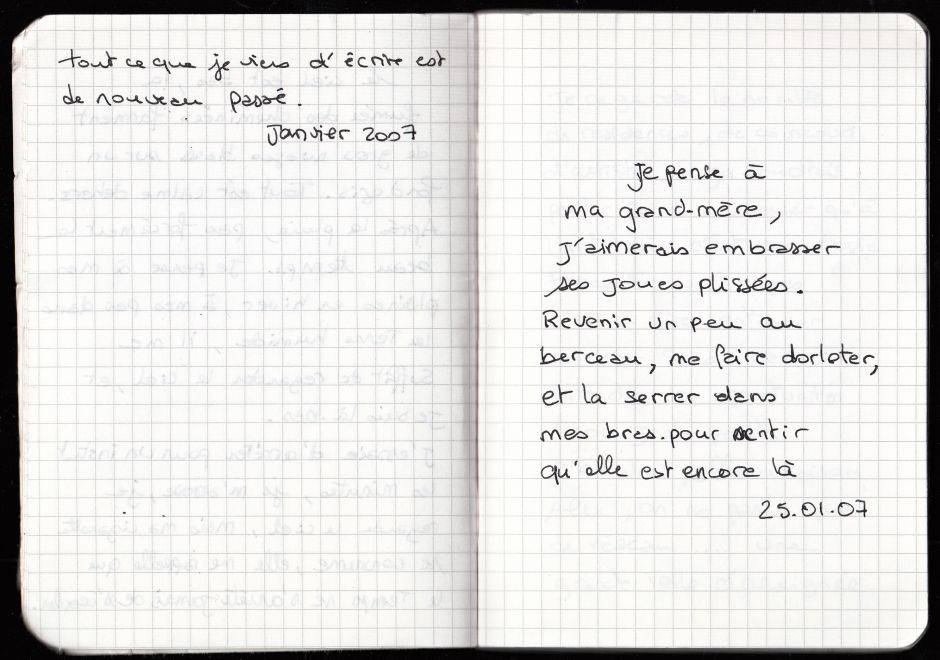 tout ce que je viens d'écrire est
de nouveau passé.
Janvier 2007
Je pense à
ma grand-mère,
j'aimerais embrasser
ses joues plissées.
Revenir un peu au
berceau, me faire dorloter,
et la serrer dans
mes bras. pour sentir
qu'elle est encore là
25.01.07